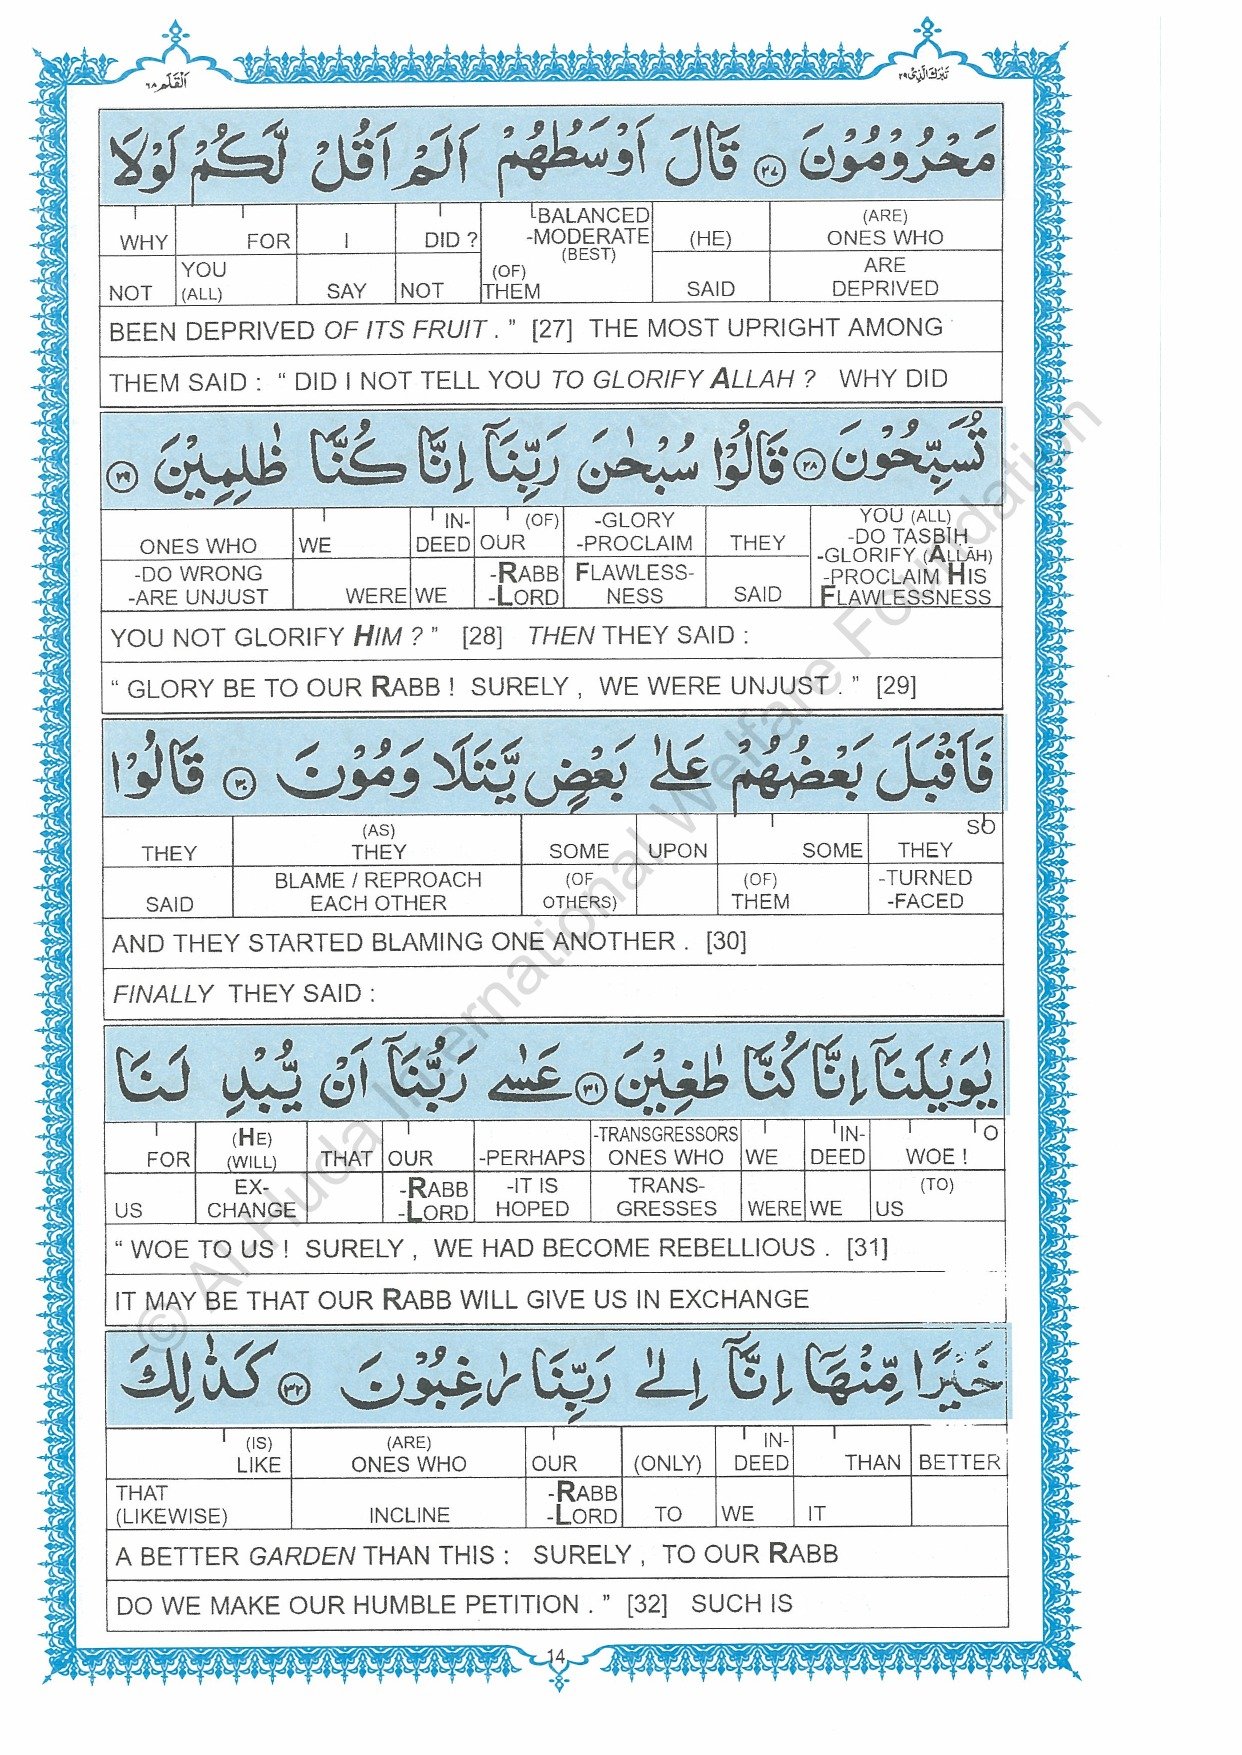 اَلْقَلَم ٦٨
تَبٰرَكَ الَّذِیْ ٢٩
مَحْرُوْمُوْنَ ٢٧ قَالَ اَوْسَطُهُمْ اَلَمْ اَقُلْ لَّكُمْ لَوْلَا
WHY FOR I DID ? -BALANCED -MODERATE (BEST) (HE) (ARE) ONES WHO
NOT YOU (ALL) SAY NOT (OF) THEM SAID ARE DEPRIVED
BEEN DEPRIVED OF ITS FRUIT . ” [27] THE MOST UPRIGHT AMONG
THEM SAID : “ DID I NOT TELL YOU TO GLORIFY ALLAH ? WHY DID
تُسَبِّحُوْنَ ٢٨ قَالُوْا سُبْحٰنَ رَبِّنَاۤ اِنَّا كُنَّا ظٰلِمِيْنَ ٢٩
ONES WHO WE IN-DEED (OF) OUR -GLORY -PROCLAIM THEY YOU (ALL) -DO TASBIH -GLORIFY (ALLĀH)
-DO WRONG -ARE UNJUST WERE WE -RABB -LORD FLAWLESS-NESS SAID -PROCLAIM HIS FLAWLESSNESS
YOU NOT GLORIFY HIM ? ” [28] THEN THEY SAID :
“ GLORY BE TO OUR RABB ! SURELY , WE WERE UNJUST . ” [29]
فَاَقْبَلَ بَعْضُهُمْ عَلٰى بَعْضٍ يَّتَلَاوَمُوْنَ ٣٠ قَالُوْا
THEY (AS) THEY SOME UPON SOME SO THEY
SAID BLAME / REPROACH EACH OTHER (OF OTHERS) (OF) THEM -TURNED -FACED
AND THEY STARTED BLAMING ONE ANOTHER . [30]
FINALLY THEY SAID :
يٰوَيْلَنَاۤ اِنَّا كُنَّا طٰغِيْنَ ٣١ عَسٰى رَبُّنَاۤ اَنْ يُّبْدِلَنَا
FOR (HE) (WILL) THAT OUR -PERHAPS -TRANSGRESSORS ONES WHO WE IN-DEED O WOE !
US EX-CHANGE -RABB -LORD -IT IS HOPED TRANS-GRESSES WERE WE US (TO)
“ WOE TO US ! SURELY , WE HAD BECOME REBELLIOUS . [31]
IT MAY BE THAT OUR RABB WILL GIVE US IN EXCHANGE
خَيْرًا مِّنْهَاۤ اِنَّاۤ اِلٰى رَبِّنَا رٰغِبُوْنَ ٣٢ كَذٰلِكَ
(IS) LIKE (ARE) ONES WHO OUR (ONLY) IN-DEED THAN BETTER
THAT (LIKEWISE) INCLINE -RABB -LORD TO WE IT
A BETTER GARDEN THAN THIS : SURELY , TO OUR RABB
DO WE MAKE OUR HUMBLE PETITION . ” [32] SUCH IS
14
© Al-Huda International Welfare Foundation